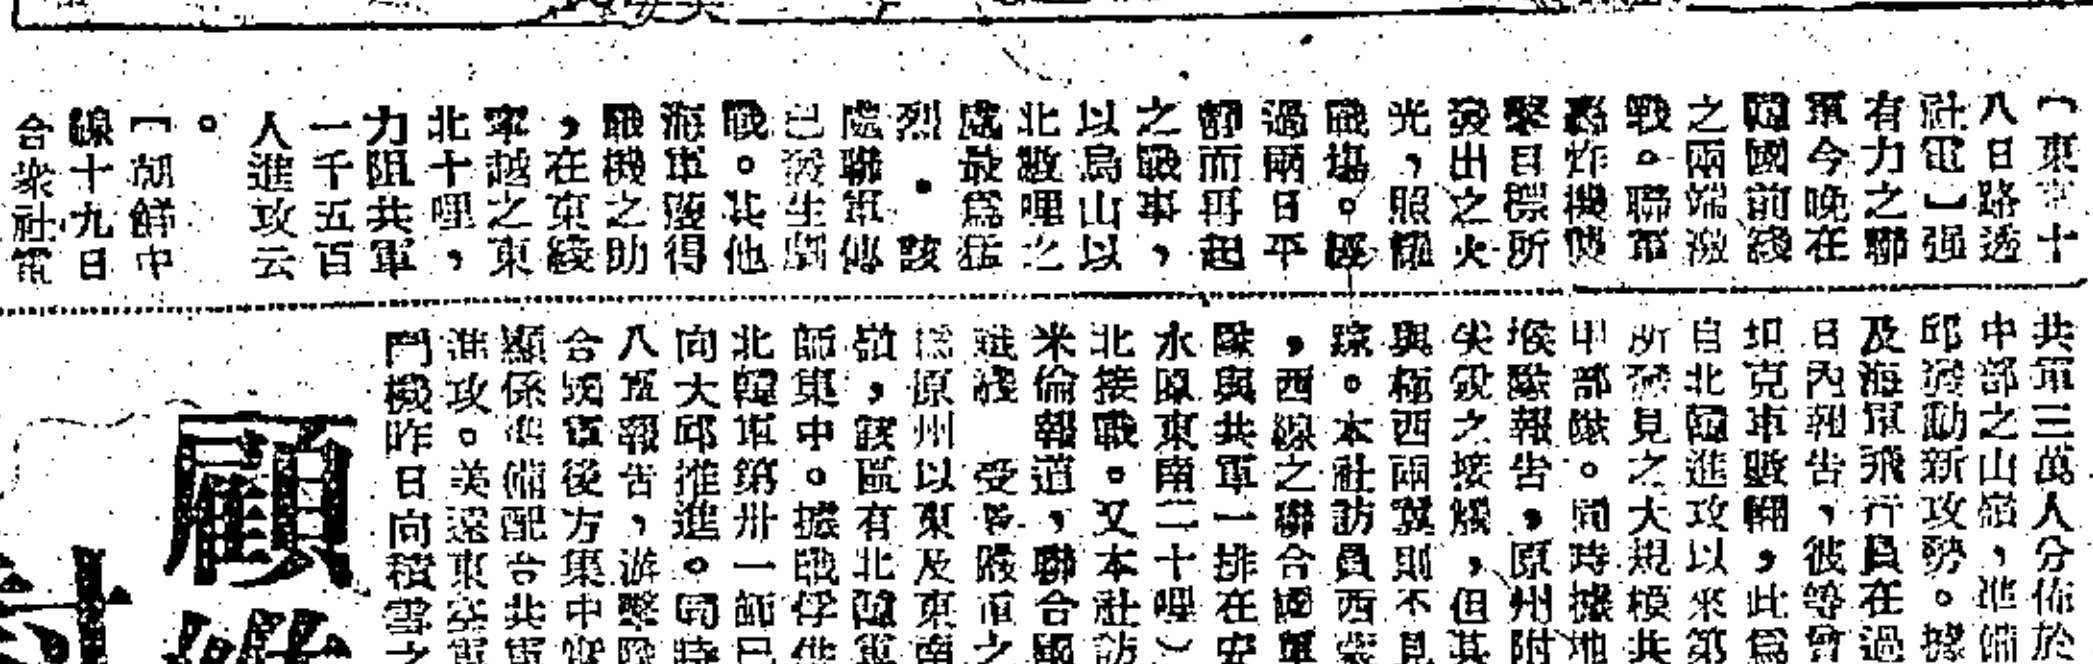 〔東京十
八日路透
社電〕强
有力之聯
軍今晚在
韓國前綫
之兩端激
戰。聯軍
轟炸機襲
擊目標所
發出之火
光，照耀
戰塲。經
過兩日平
靜而再起
之戰事，
以烏山以
北數哩之
處最爲猛
烈．該
處聯軍傳
已發生劇
戰。其他
海軍獲得
戰機之助
，在東綫
寧越之東
北十哩，
力阻共軍
一千五百
人進攻云
。
〔朝鮮中
線十九日
合衆社電
共軍三萬人分佈於
中部之山嶺，準備
邱發動新攻勢。據
及海軍飛行員在過
日內報告，彼等曾
坦克車數輛，此爲
自北韓進攻以來第
所發見之大規模共
甲部隊。同時據地
堠隊報告，原州附
尖銳之接觸，但其
與極西兩翼則不見
踪。本社訪員西蒙
，西線之聯合國軍
隊與共軍一排在安
水原東南二十哩）
北接戰。又本社訪
米倫報道，聯合國
戰綫 受 嚴重之
原州以東及東南
嶺，該區有北韓軍
師集中。據戰俘供
北韓軍第卅一師已
向大邱推進。同時
八軍報告，游擊隊
合國軍後方集中實
顯係準備配合共軍
進攻。美遠東空軍
鬥機昨日向積雪之
顧維